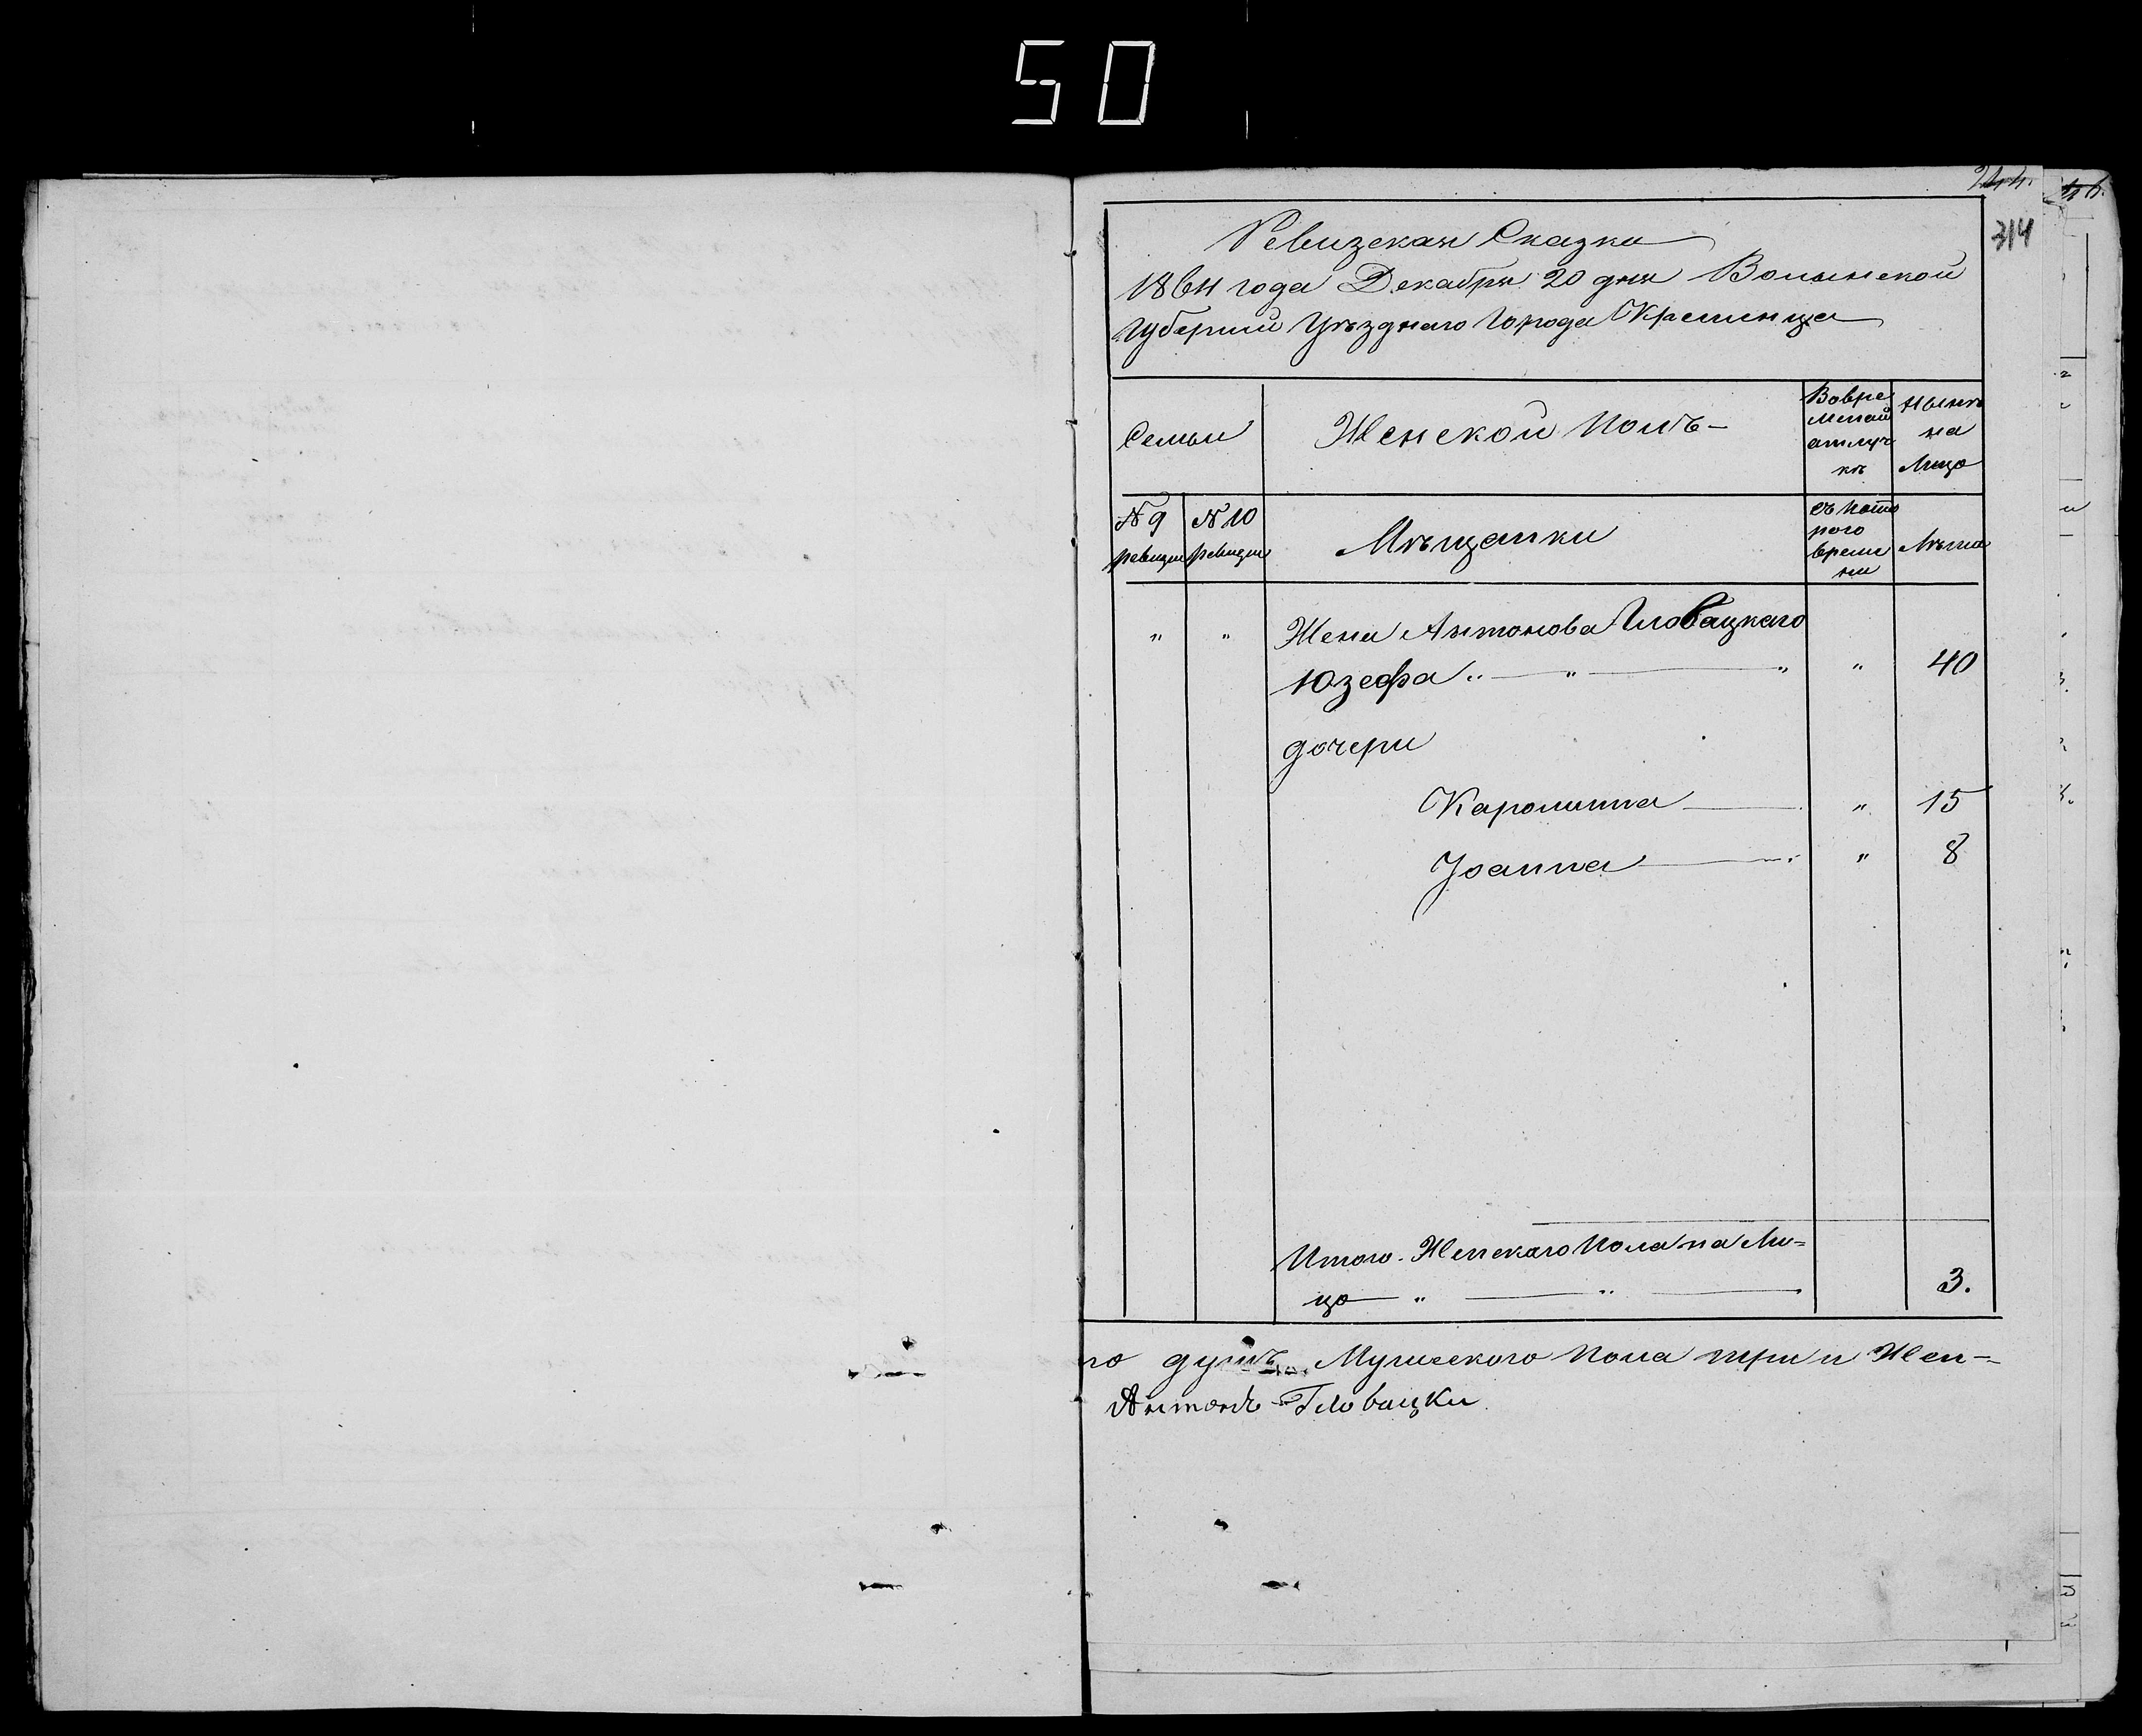 50
244.
314
Ревизская Сказка
1864 года Декабря 20 дня Волынской
Губернии Уѣзднаго Города Кременца
Семьи
Женской Полъ-
Вовре
менай
атлуч
кѣ
Нынѣ
на
Лицо
№ 9
ревизии
№ 10
ревизии
Мѣщанки
Съ Кото
рого
време
ни
Лѣта
" " Жена Антонова Гловацкаго
Юзефа " " " " 40
дочери
Каролина " 15
Іоанна " 8
Итого Женскаго Пола на Ли=
цо " " 3.
но душъ Мужескаго Пола три и Жен=
Антонъ Гловацки